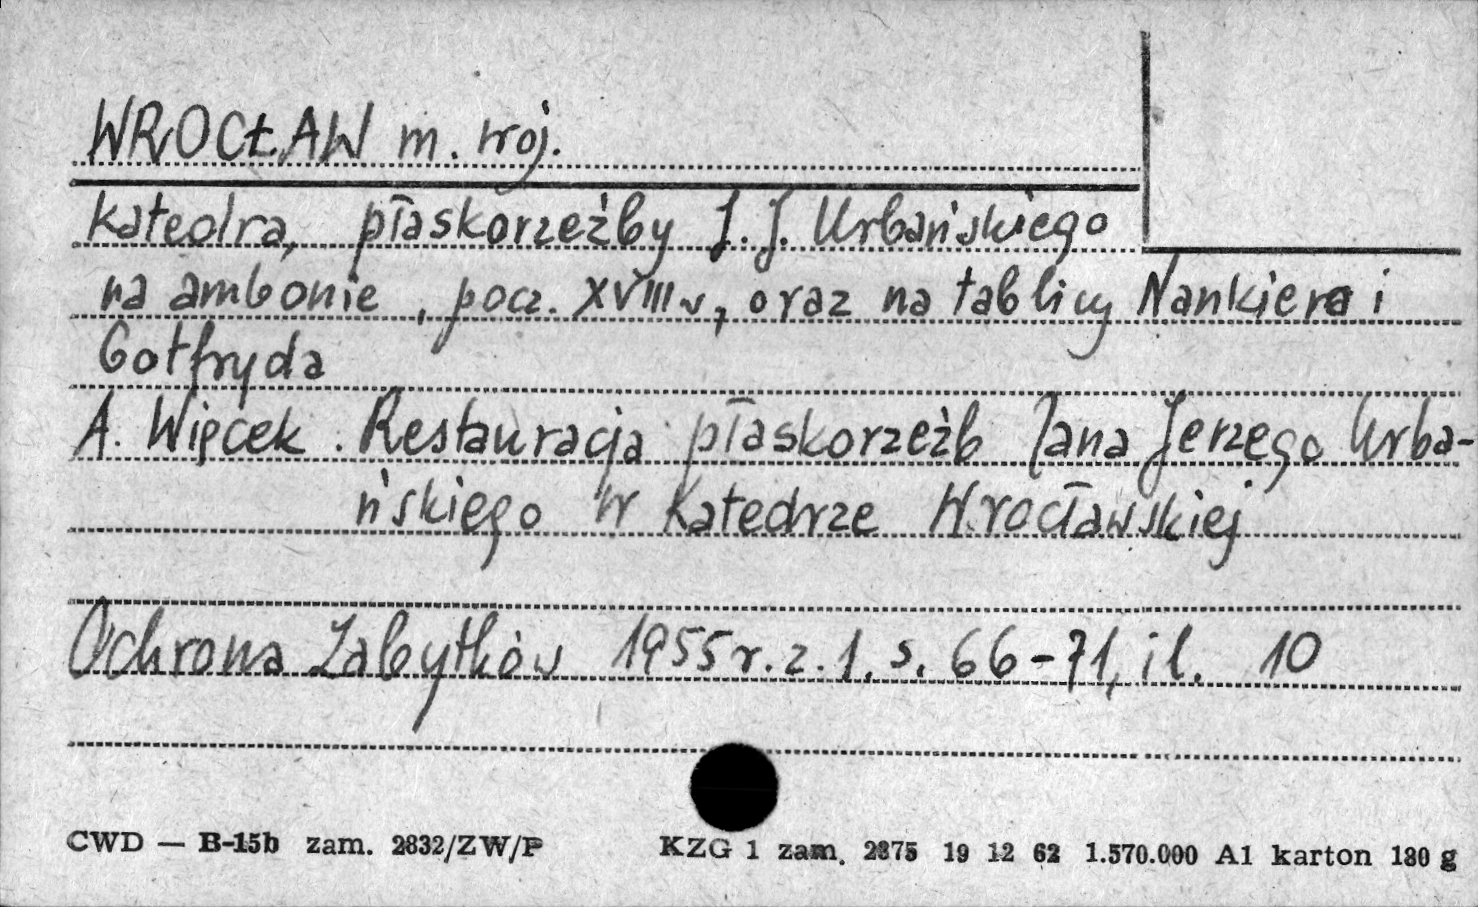 WROCŁAW m. woj.
katedra, płaskorzeźby J. J. Urbańskiego
na ambonie, pocz. XVIII w, oraz na tablicy Nankiera i
Gotfryda
A. Więcek. Restauracja płaskorzeźb Jana Jerzego Urba-
ńskiego w Katedrze Wrocławskiej
Ochrona Zabytków 1955 r. z. 1. s. 66-71, il. 10
CWD — B-15b zam. 2832/ZW/P KZG 1 zam. 2875 19 12 62 1.570.000 A1 karton 180 g